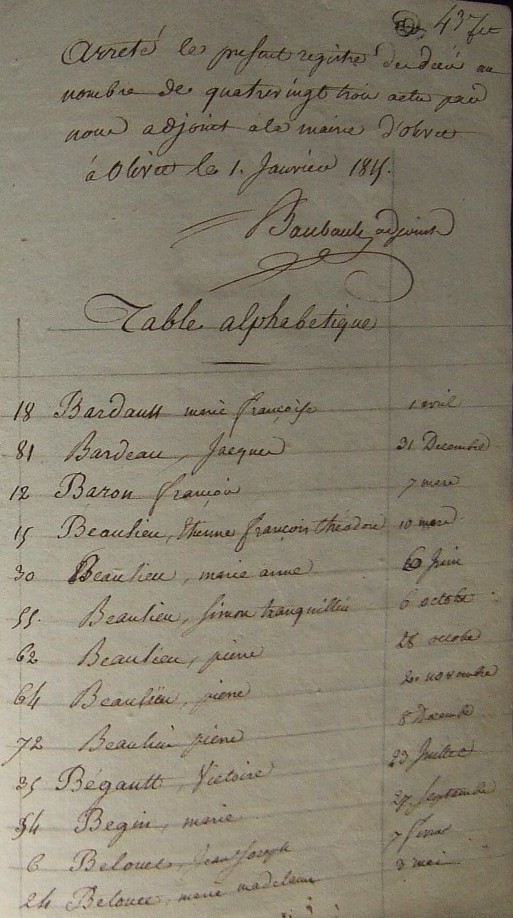 43
arreté le present registre de deces au
nombre de quatrevingt trois actes par
nous adjoint a la mairie d'olivet
à Olivet le 1. Janvier 1815.
adjoint
Table alphabetique
18 Bardault marie françoise 1 avril
81 Bardeau, Jacques 31 Decembre
12 Baron françois 7 mars
15 Beaulieu, Etienne françois théodore 10 mars
30 Beaulieu, marie anne 6 Juin
55. Beaulieu, Simon tranquillin 6 octobre
62 Beaulieu, pierre 28 octobre
64 Beaulieu, pierre 2. novembre
72 Beaulieu pierre 8 Decembre
35 Bégault, Victoire 23 Juillet
54 Begin, marie 27 Septembre
6 Belouet, Jean Joseph 7
24 Belouet, marie madelaine 3 mai